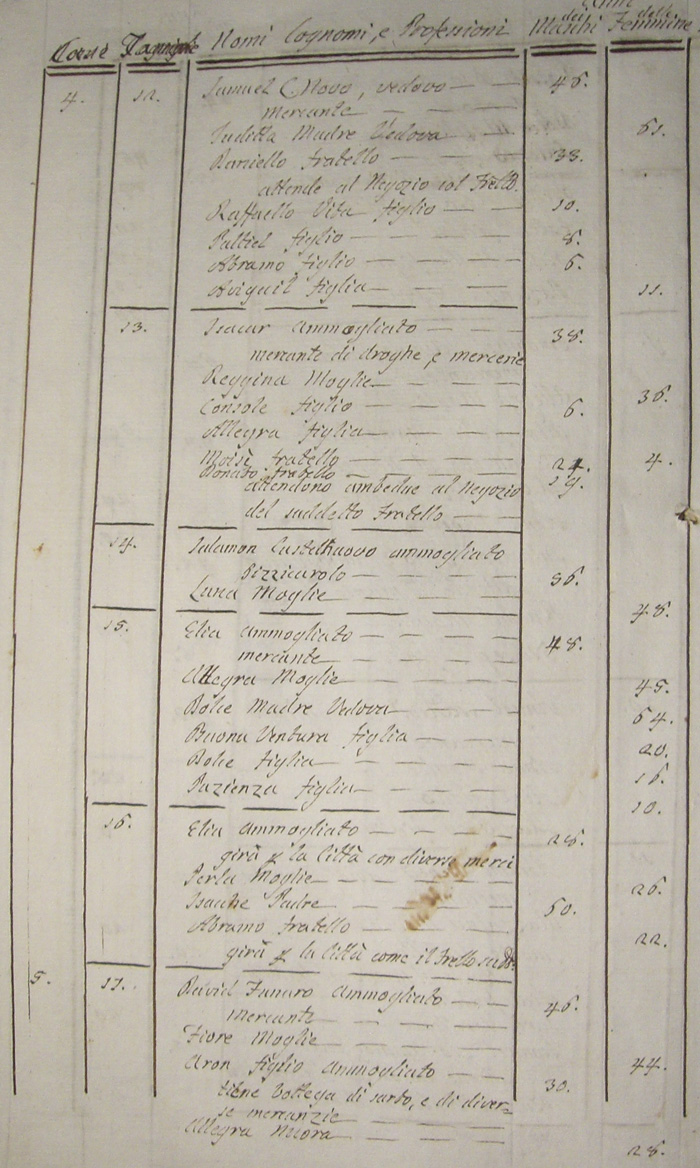 Anni
Case Famiglie Nomi Cognomi, e Professioni dei Maschi delle Femmine
4. 12. Samuel C. Novo, vedovo — 46.
mercante — — —
Juditta Madre Vedova — — 61.
Daniello fratello — — — 33.
attende al Negozio col Frello.
Raffaello Vita figlio — — 10.
Paltiel figlio — — — 8.
Abramo figlio — — — 6.
Avigail figlia — — — 11.
13. Isacar ammogliato — — 38.
mercante di droghe, e mercerie
Reggina Moglie — — — 36.
Console figlio — — — 6.
Allegra figlia — — — 4.
Moisè fratello — — — 24.
Donato fratello — — — 19.
attendono ambedue al Negozio
del suddetto Fratello — —
14. Salamon Castelnuovo ammogliato
Pizzicarolo — — — 56.
Luna Moglie — — — 48.
15. Elia ammogliato — — — 48.
mercante — — —
Allegra Moglie — — — 45.
Dolce Madre Vedova — — — 64.
Buona Ventura figlia — — — 20.
Dolce figlia — — — 16.
Pazienza figlia — — — 10.
16. Elia ammogliato — — — 28.
girà p la Città con diverse merci
Perla Moglie — — — 26.
Isache Padre — — — 60.
Abramo fratello — — — 22.
girà p la Città come il Frello sudd.
5. 17. David Funaro ammogliato — — 46.
mercante — — —
Fiore Moglie — — — 44.
Aron figlio ammogliato — — 30.
tiene bottega di sarto, e di diver=
se mercanzie — — —
Allegra Nuora — — — 28.